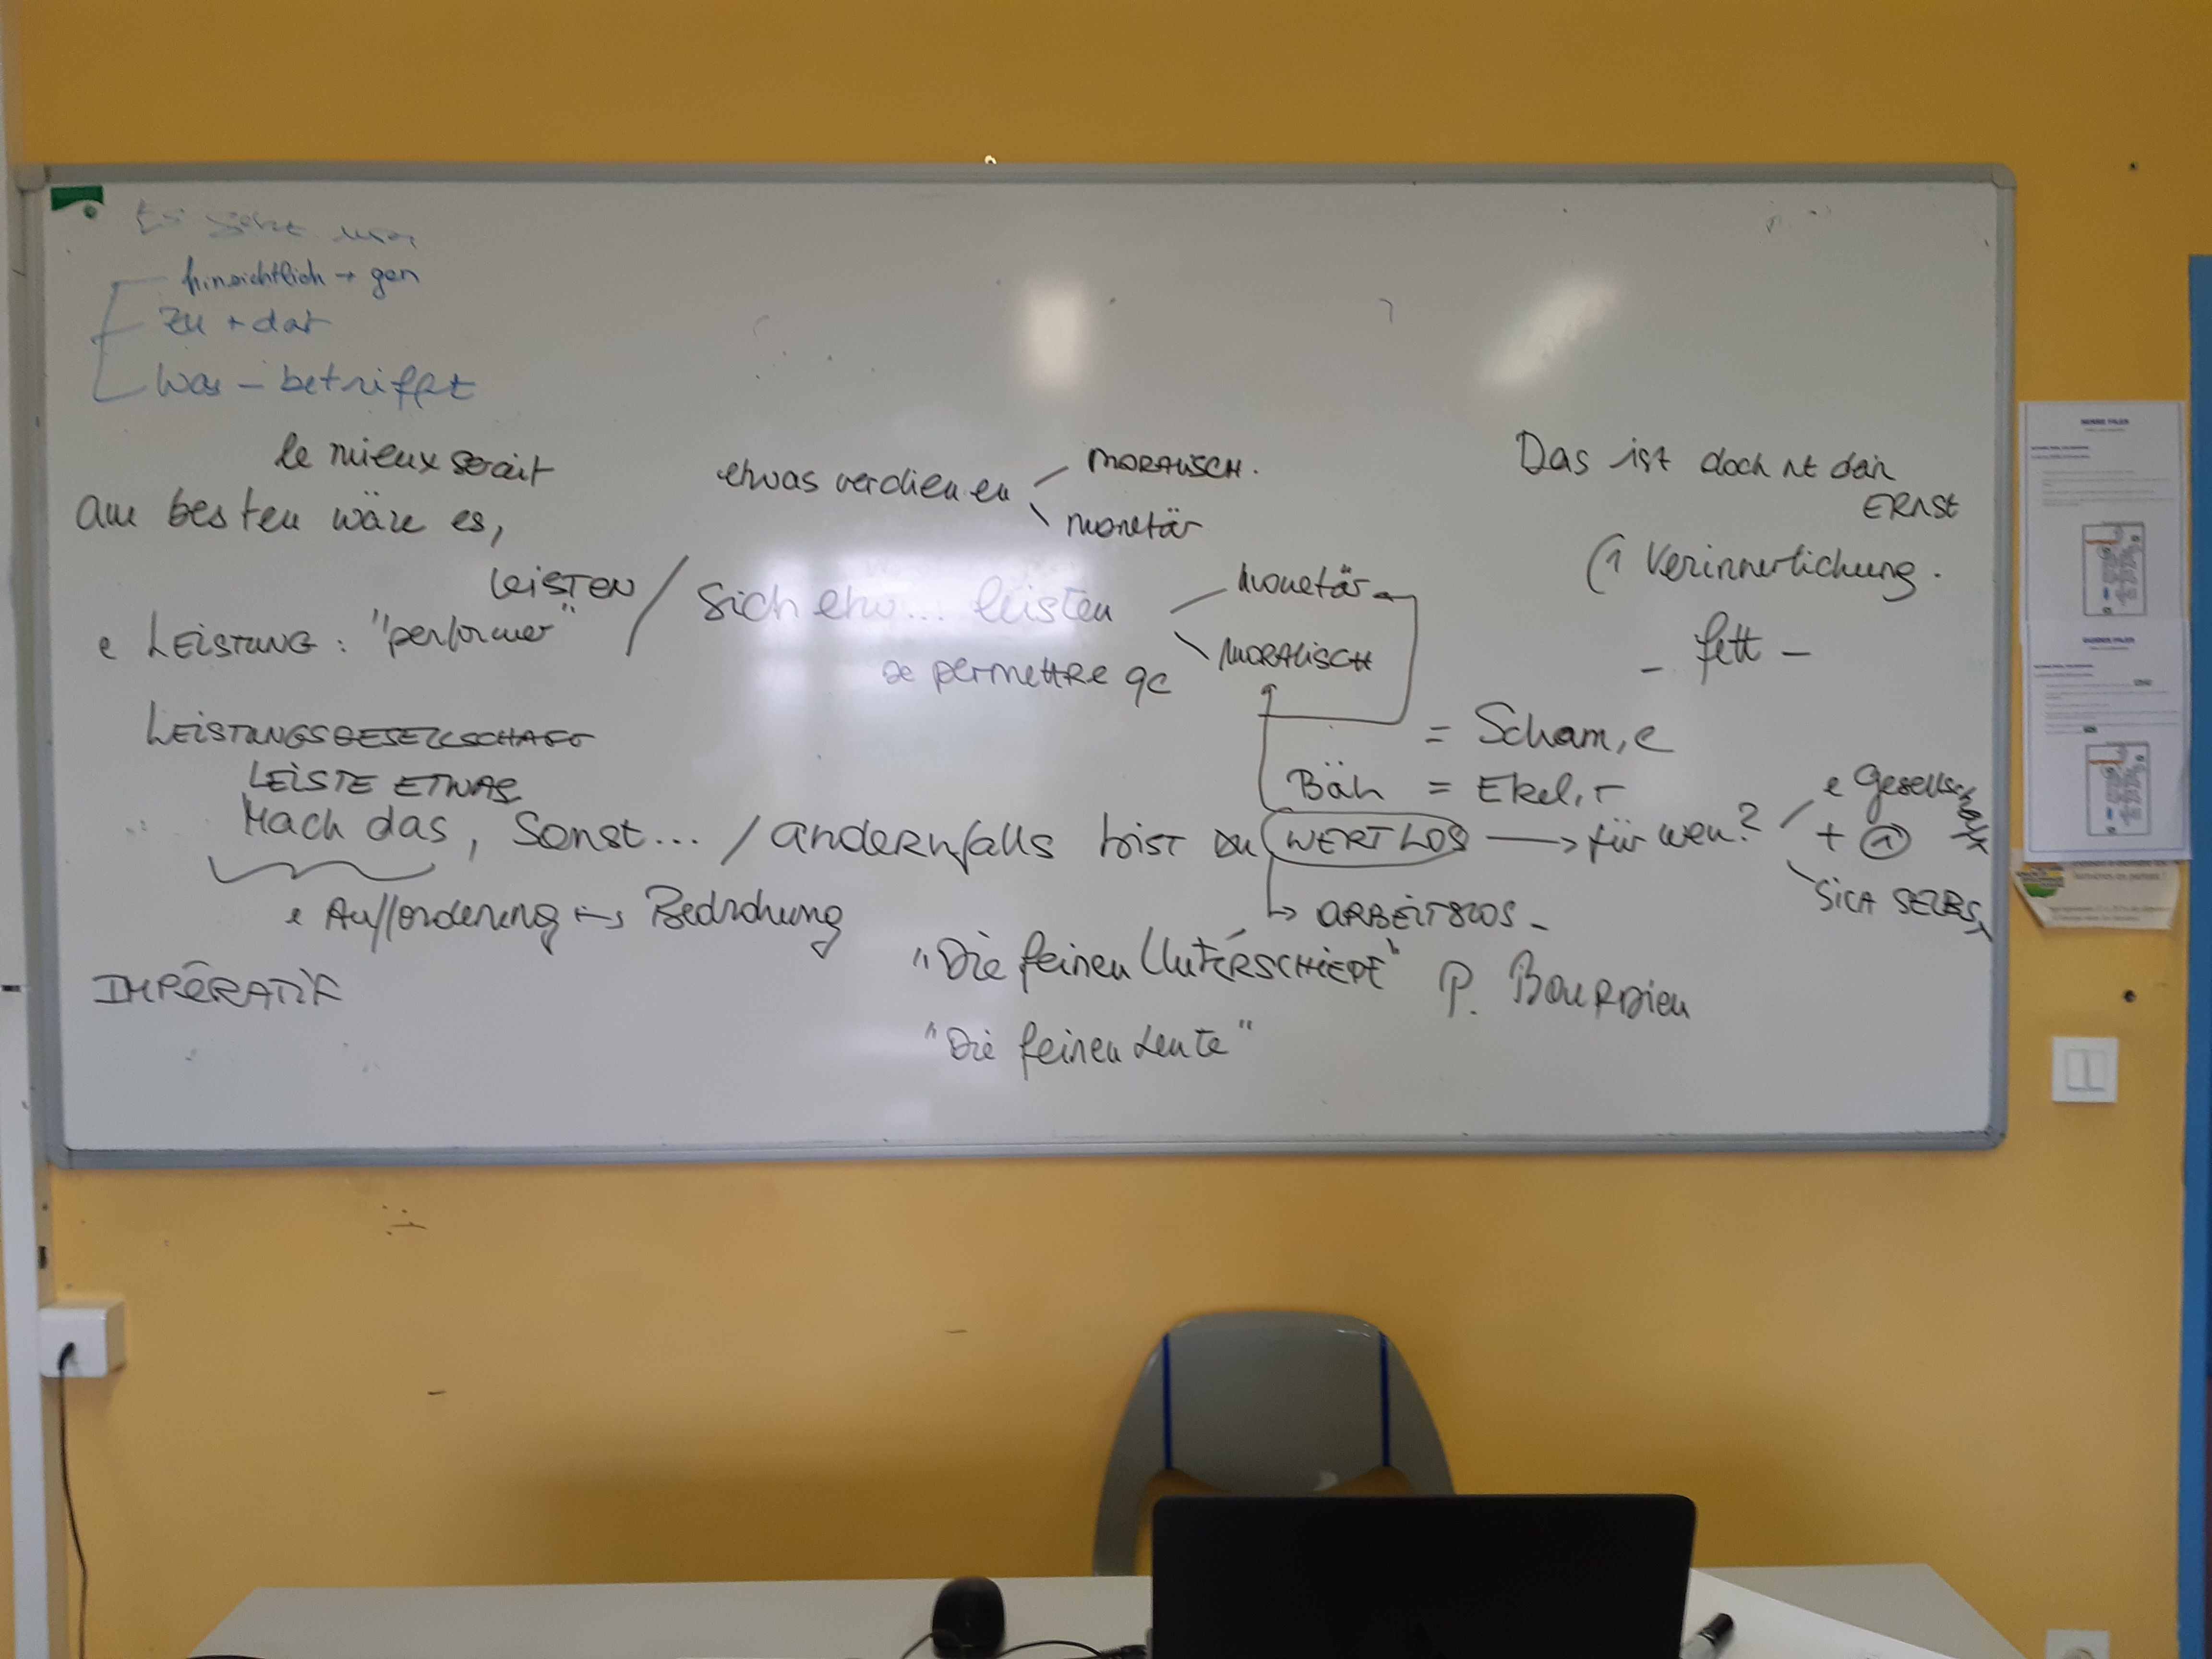 Es geht um
hinsichtlich → gen
zu + dat
Was – betrifft
le mieux serait
am besten wäre es,
etwas verdienen
MORALISCH.
monetär
Das ist doch nt dein
ERNST
LEISTEN / Sich etw... leisten
monetär
MORALISCH
e LEISTUNG : "performer"
se permettre qc
Verinnerlichung.
– fett –
LEISTUNGSGESELLSCHAFT
= Scham, e
LEISTE ETWAS
Bäh = Ekel, r
Mach das, Sonst... / andernfalls bist du WERTLOS → für wen?
e Gesellsch
+
SICH SELBST
e Aufforderung ↔ Bedrohung
↳ ARBEITSLOS –
IMPÉRATIF
"Die feinen UNTERSCHIEDE" P. BOURDIEU
"Die feinen Leute"